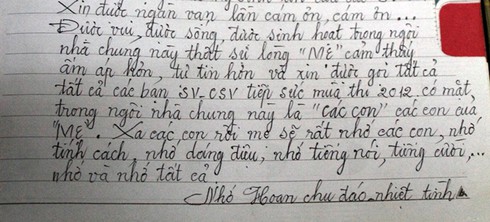 Xin được ngàn vạn lần cảm ơn, cảm ơn...
Được vui, được sống, được sinh hoạt trong ngôi
nhà chung này thật sự lòng "MẸ" cảm thấy
ấm áp hơn, tự tin hơn và xin được gọi tất cả
tất cả các bạn SV-CSV tiếp sức mùa thi 2012 có mặt
trong ngôi nhà chung này là "các con" các con của
"MẸ". Xa các con rồi mẹ sẽ rất nhớ các con, nhớ
tính cách, nhớ dáng điệu, nhớ tiếng nói, từng cười,...
nhớ và nhớ tất cả
Nhớ Hoan chu đáo, nhiệt tình